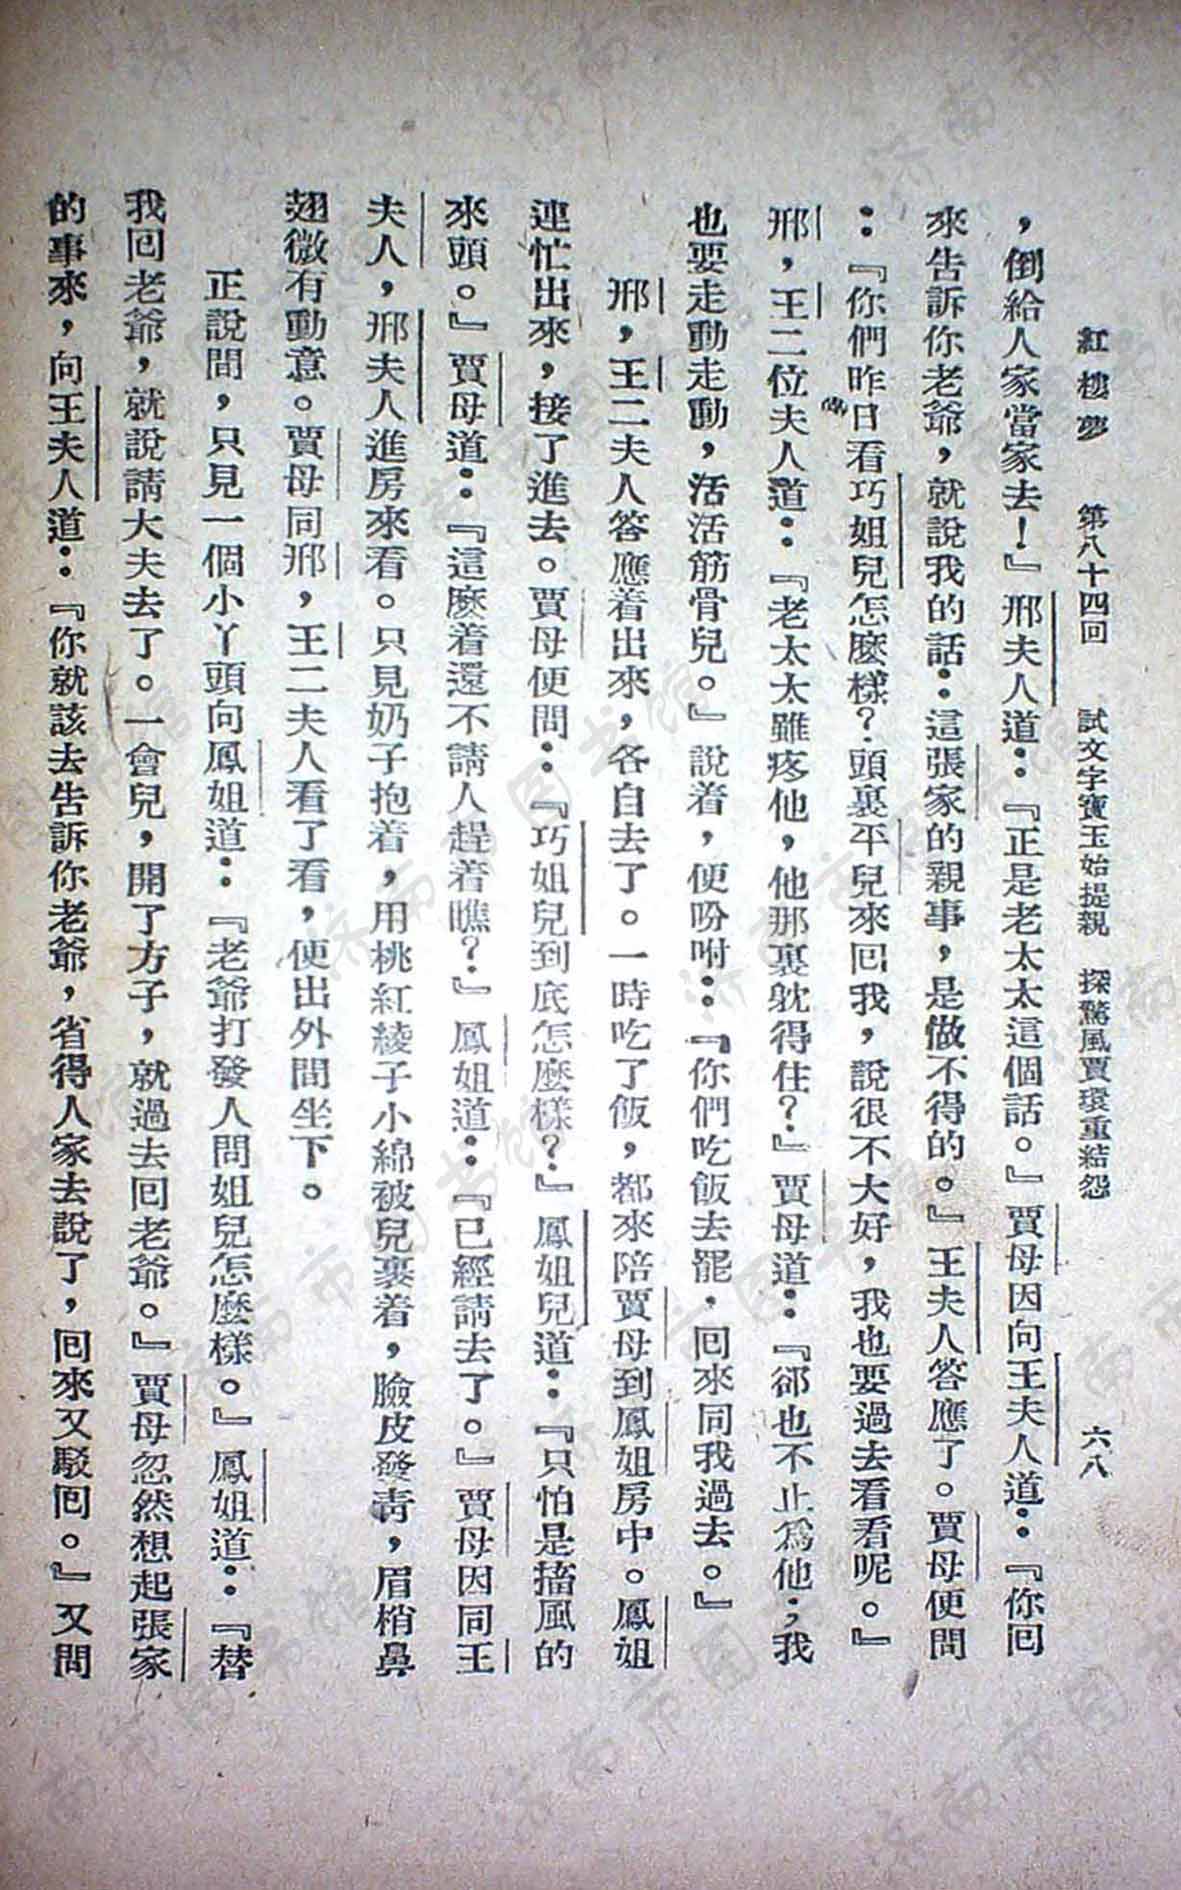 紅樓夢　第八十四回　試文字寶玉始提親　探驚風賈環重結怨　六八
，倒給人家當家去！』邢夫人道：『正是老太太這個話。』賈母因向王夫人道：『你回
來告訴你老爺，就說我的話：這張家的親事，是做不得的。』王夫人答應了。賈母便問
：『你們昨日看巧姐兒怎麼樣？頭裏平兒來回我，說很不大好，我也要過去看看呢。』
邢，王二位夫人道：『老太太雖疼他，他那裏躭得住？』賈母道：『卻也不止爲他，我
也要走動走動，活活筋骨兒。』說着，便吩咐：『你們吃飯去罷，回來同我過去。』
邢，王二夫人答應着出來，各自去了。一時吃了飯，都來陪賈母到鳳姐房中。鳳姐
連忙出來，接了進去。賈母便問：『巧姐兒到底怎麼樣？』鳳姐兒道：『只怕是搐風的
來頭。』賈母道：『這麼着還不請人趕着瞧？』鳳姐道：『已經請去了。』賈母因同王
夫人，邢夫人進房來看。只見奶子抱着，用桃紅綾子小綿被兒裹着，臉皮發青，眉梢鼻
翅微有動意。賈母同邢，王二夫人看了看，便出外間坐下。
正說間，只見一個小丫頭向鳳姐道：『老爺打發人問姐兒怎麼樣。』鳳姐道：『替
我回老爺，就說請大夫去了。一會兒，開了方子，就過去回老爺。』賈母忽然想起張家
的事來，向王夫人道：『你就該去告訴你老爺，省得人家去說了，回來又駁回。』又問